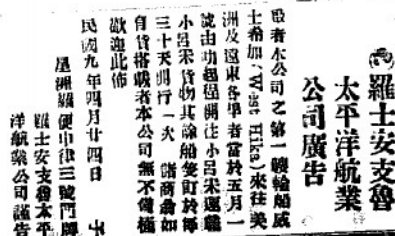 羅士安支魯
太平洋航業
公司廣告
啟者本公司之第一艘輪船威
士希加(West Hika)來往美
洲及遠東各埠者當於五月一
號由叻起程開往小呂宋運載
小呂宋貨物其餘船隻訂於每
三十天開行一次 諸商翁如
有貨搭載者本公司無不儘極
歡迎此佈
民國九年四月廿四日
星洲羅便申律三號門牌
羅士安支魯太平
洋航業公司謹告